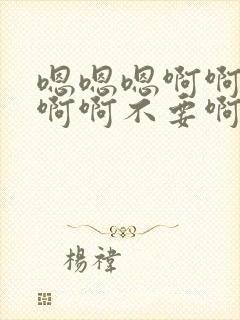 嗯嗯嗯啊啊
啊啊不要啊
楊禕